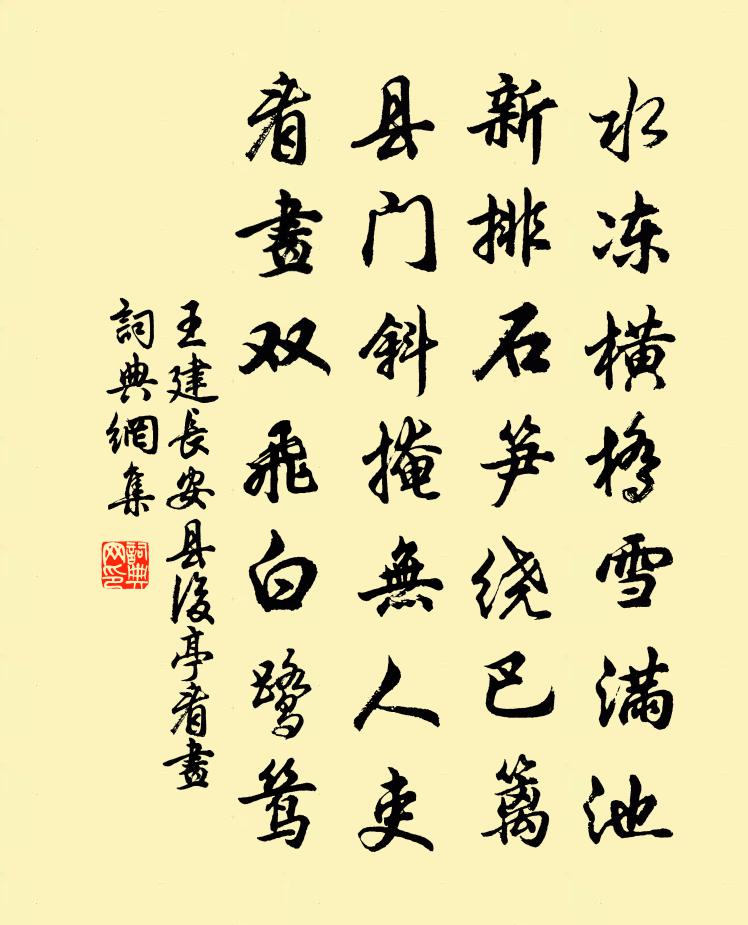 水冻横桥雪满池
新排石笋绕巴篱
县门斜掩無人吏
看畫双飛白鹭鸶
王建長安县後亭看畫
詞典網集
詞典网印